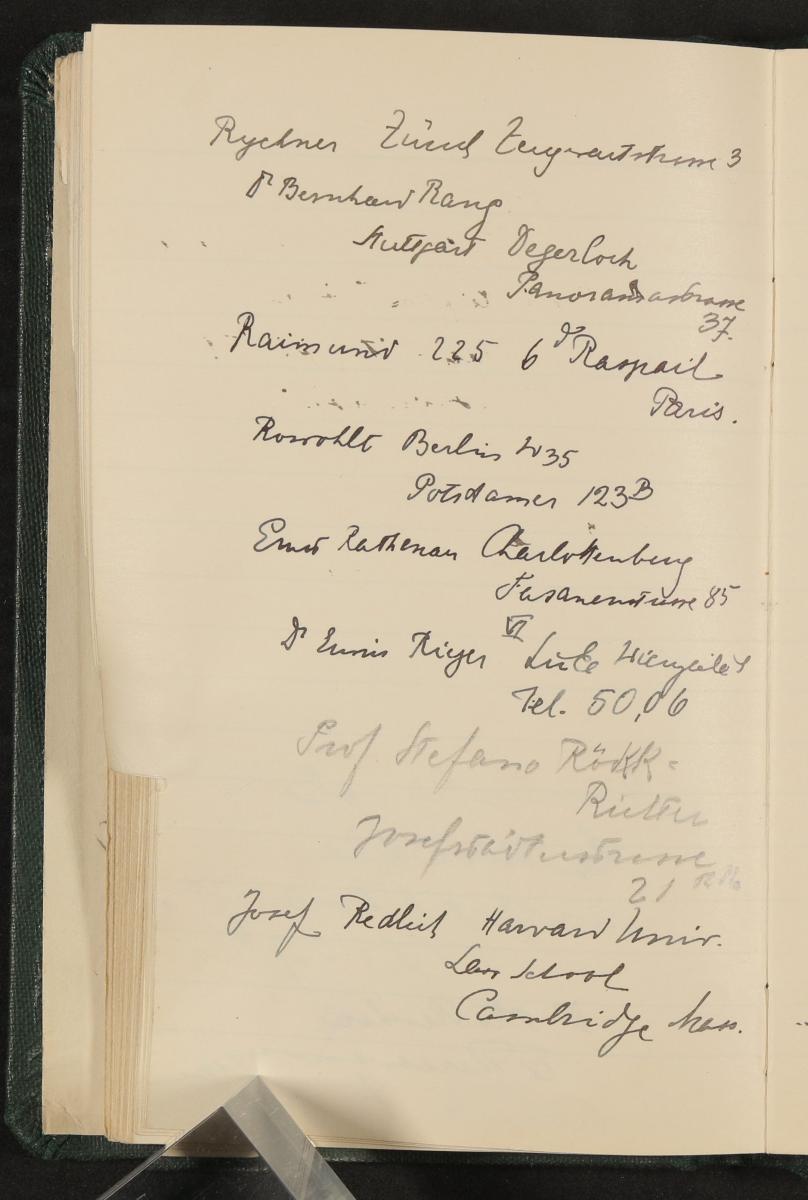 Rychner Zürich Zeugwartstrasse 3
Dr Bernhard Rang
Stuttgart Degerloch
Panoramastrasse
37.
Raimund 225 Bd Raspail
Paris.
Rowohlt Berlin W35
Potsdamer 123B
Ernst Rathenau Charlottenburg
Fasanenstrasse 85
Dr Erwin Rieger VI Linke Wienzeile
Tel. 50,06
Prof Stefano
Josefstädterstrasse
21
Josef Redlich Harvard Univ.
Law School
Cambridge Mass.